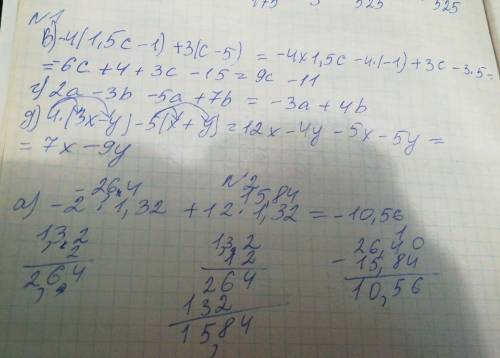 175 3 525 525
N1
в) -4(1,5c-1)+3(c-5) = -4×1,5c-4·(-1)+3c-3·5=
=6c+4+3c-15=9c-11
г) 2a-3b-5a+7b=-3a+4b
д) 4·(3x-y)-5(x+y)=12x-4y-5x-5y=
=7x-9y
N2
-26,4 15,84
а) -2·1,32+12·1,32=-10,56
1,32
2
2,64
1,32
12
264
132
15,84
26,40
- 15,84
10,56